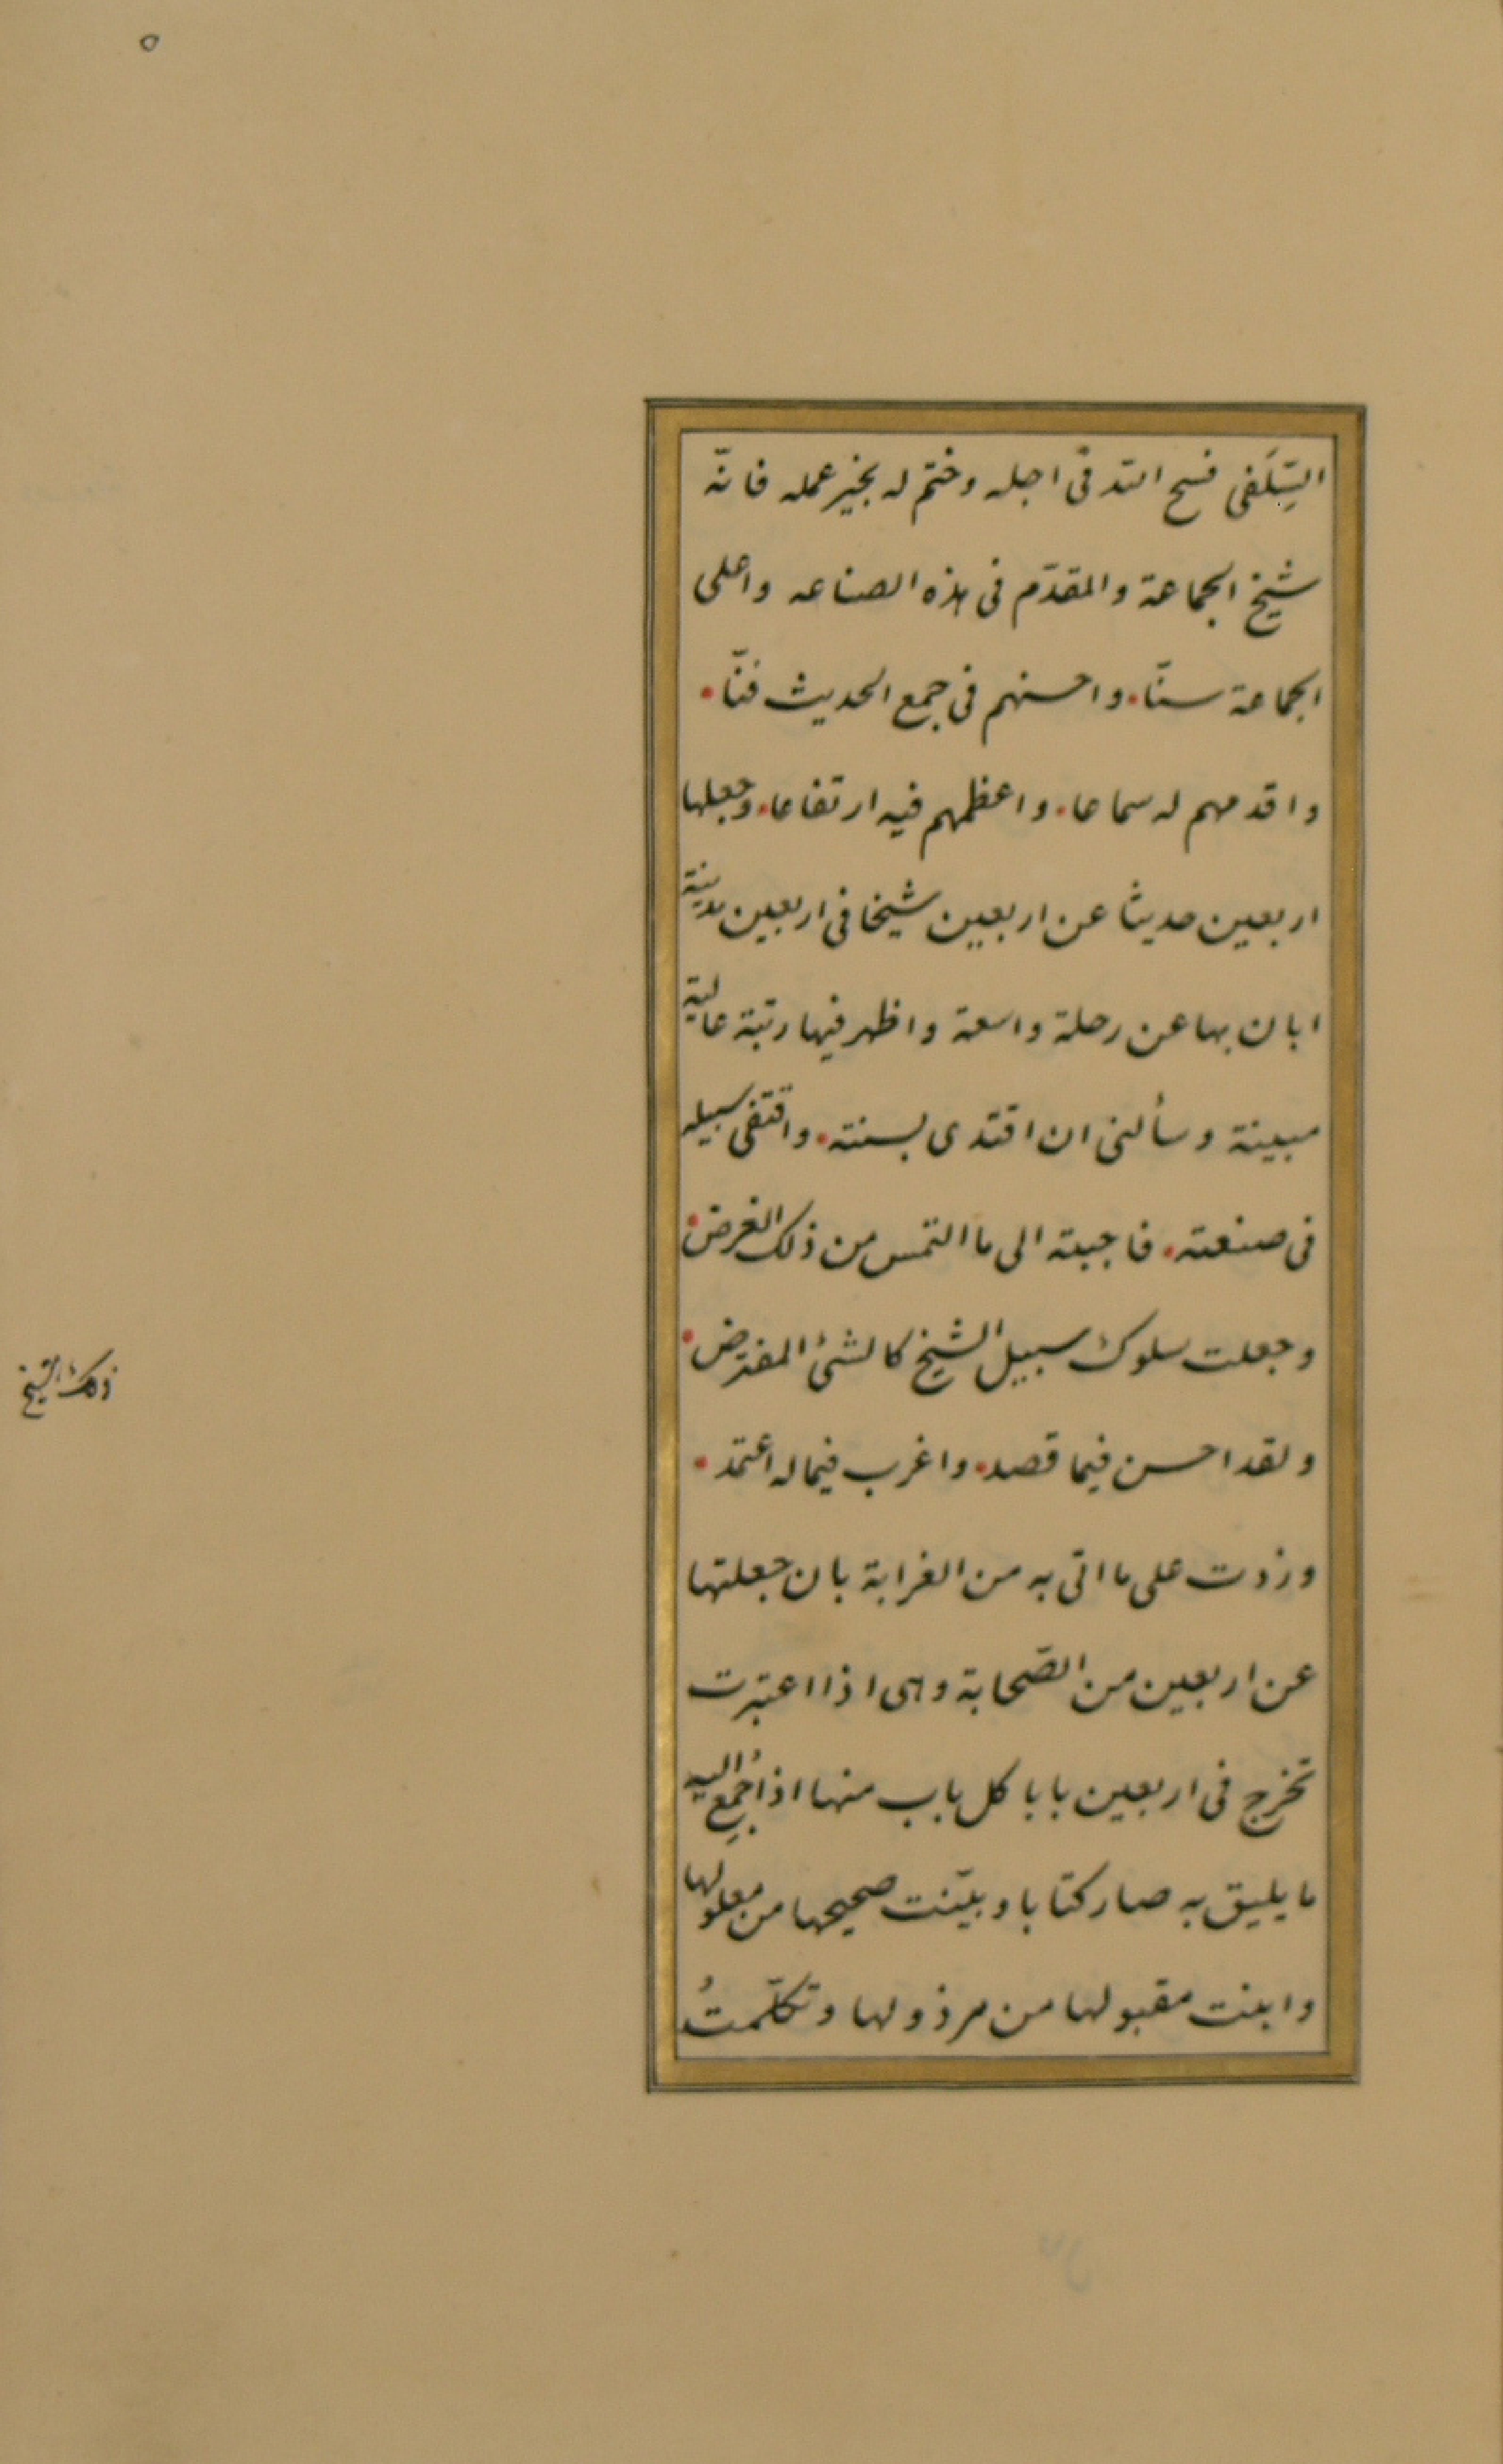 ٥
السِّلَفى فسح الله فى اجله وختم له بخير عمله فانّه
شيخ الجماعة والمقدّم فى هذه الصناعه واعلى
الجماعة سنّا. واحسنهم فى جمع الحديث فنّا.
واقدمهم له سماعا. واعظمهم فيه ارتفاعا. وجعلها
اربعين حديثا عن اربعين شيخا فى اربعين مدينة
ابان بها عن رحلة واسعة واظهر فيها رتبة عالية
مبينة وسألنى ان اقتدى بسنته. واقتفى سبيله
فى صنعته. فاجبته الى ما التمس من ذلك الغرض.
وجعلت سلوك سبيل الشيخ كالشئ المفترض.
ذلك الشيخ
ولقد احسن فيما قصد. واغرب فيما له اعتمد.
وزدت على ما اتى به من الغرابة بان جعلتها
عن اربعين من الصّحابة وهى اذا اعتبرت
تخرج فى اربعين بابا كل باب منها اذا جُمِع اليه
ما يليق به صار كتابا وبيّنت صحيحها من معلولها
وابنت مقبولها من مرذولها وتكلّمتُ